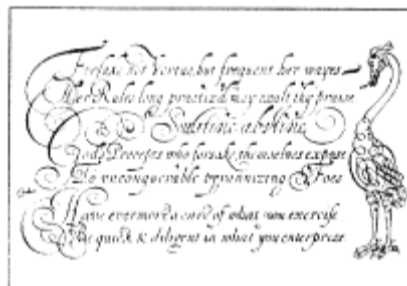 Forsake not Vertue, but frequent her wayes
Her Rules long practized may exult thy praise
Gods Precepts who forsake, themselves expose
To unconquerable tyrannizing Foes
Have evermore a care of what you exercise
Be quick & diligent in what you enterprize